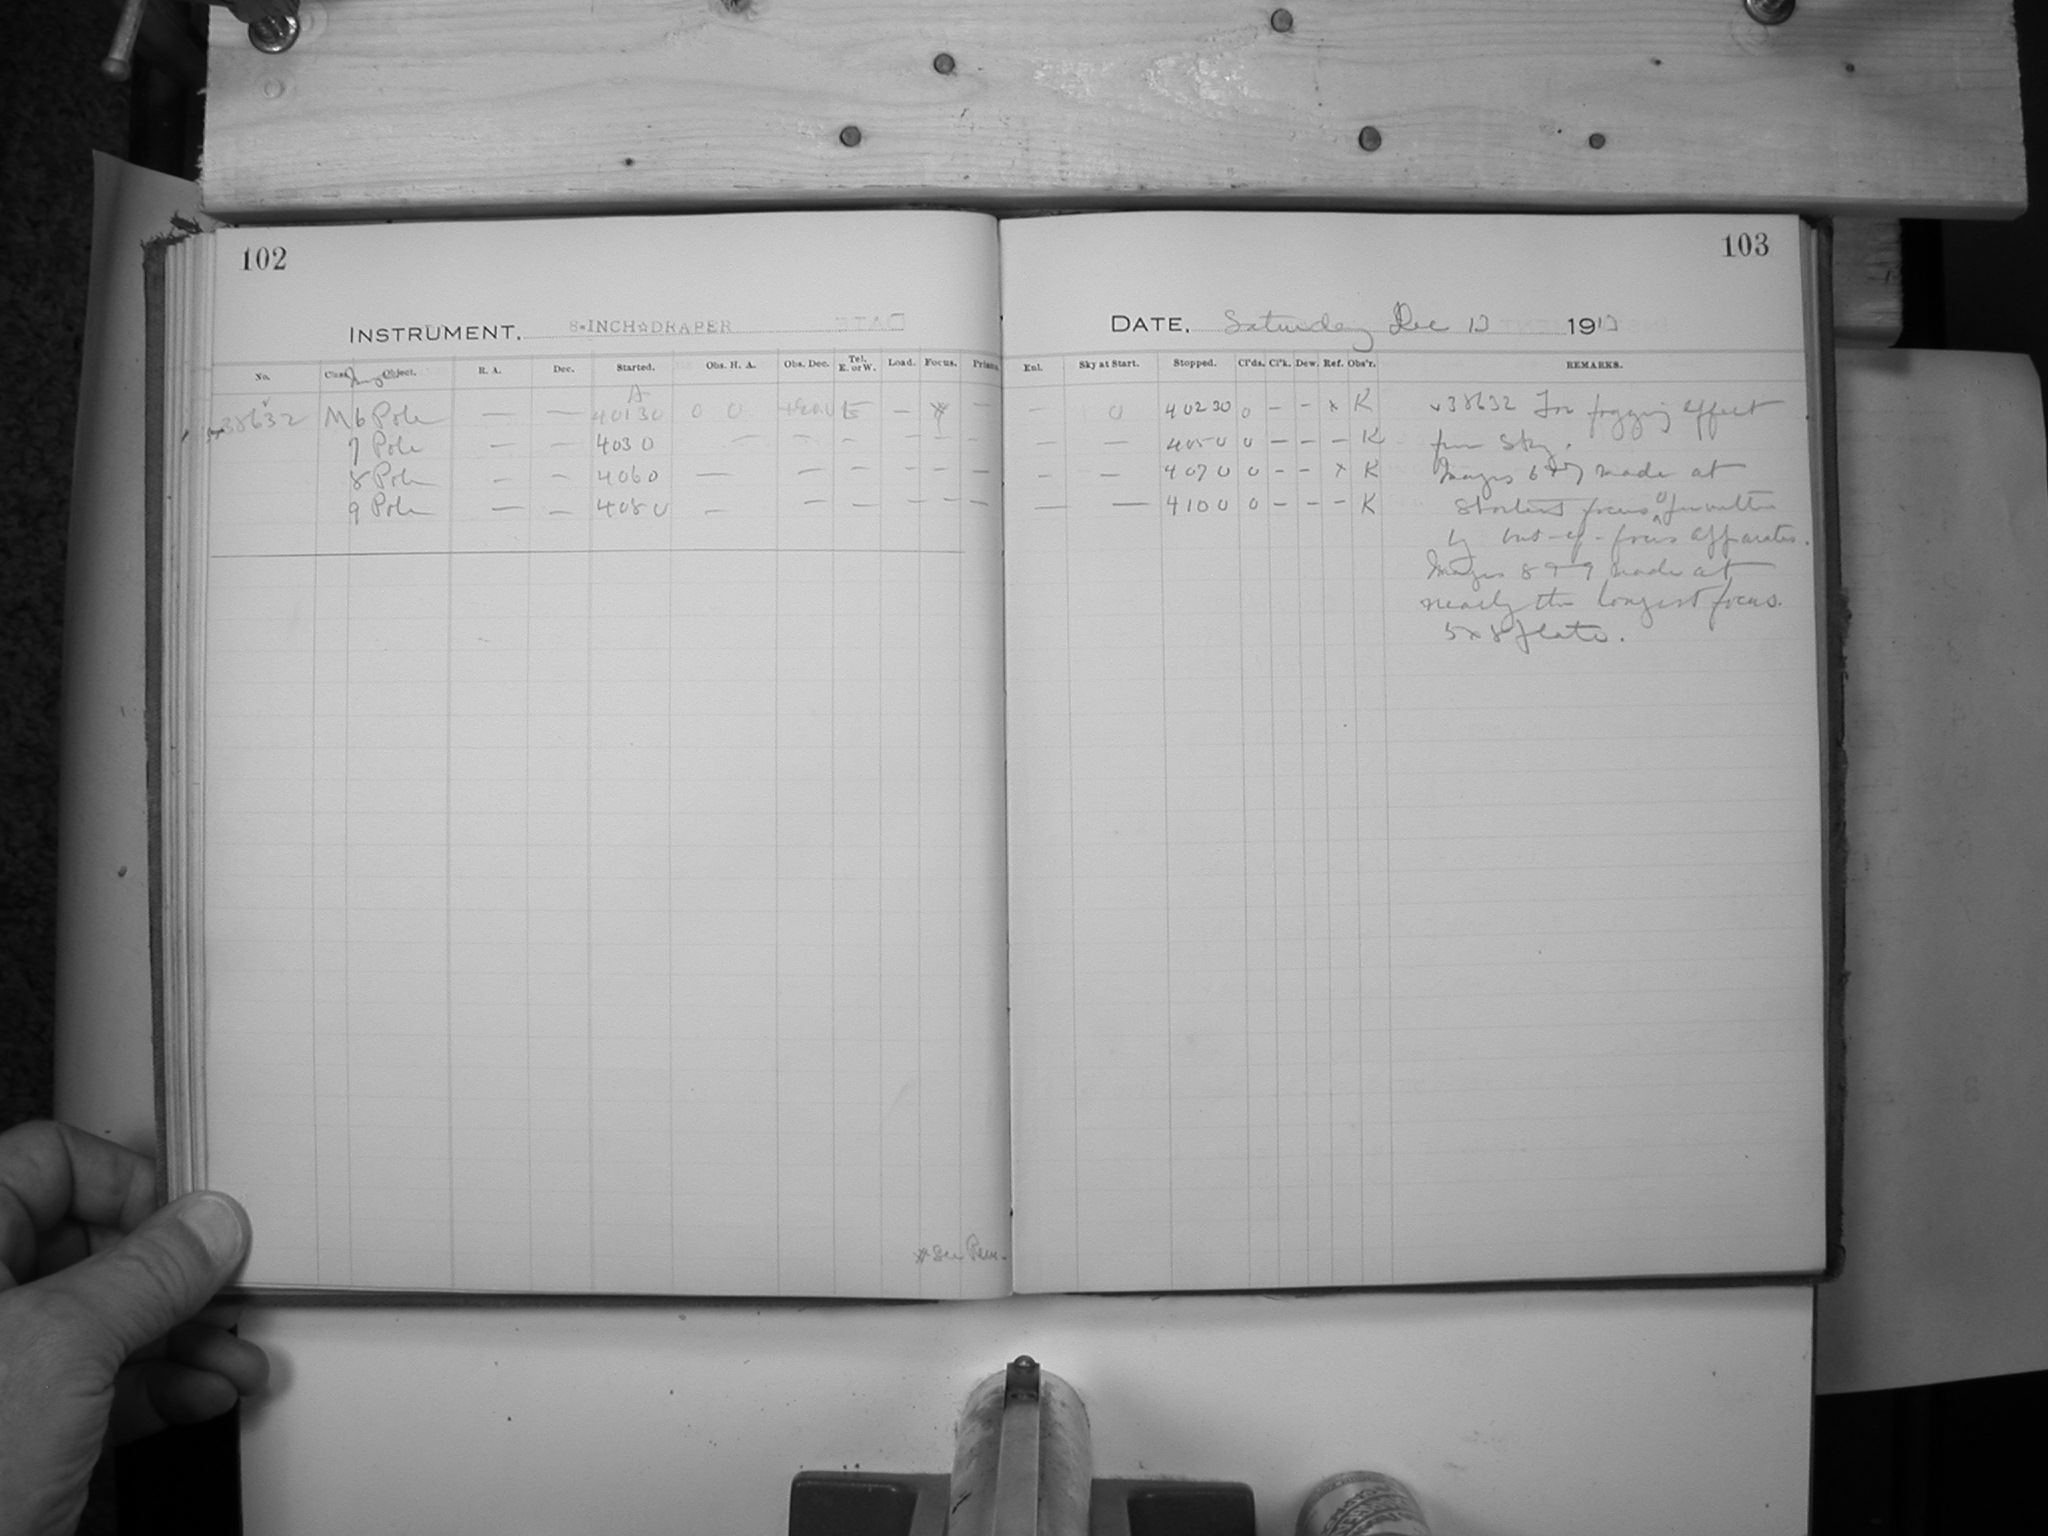 102
INSTRUMENT. 8-INCH☆DRAPER
No. Class Object. R. A. Dec. Started. Obs. H. A. Obs. Dec. Tel. E. or W. Load. Focus. Prism.
A
38632 M 6 Pole — — 40130 0 0 E — * —
7 Pole — — 4030 — — — — — —
8 Pole — — 4060 — — — — — —
9 Pole — — 4080 — — — — — —
* See Rem.
103
DATE. Saturday Dec 13 1913
Enl. Sky at Start. Stopped. Cl'ds. Cl'k. Dew. Ref. Obs'r. REMARKS.
— 0 40230 0 — — x K v38632 For fogging effect
— — 4050 0 — — — K from sky.
— — 4070 0 — — x K Images 6+7 made at
— — 4100 0 — — — K shortest focus
by out-of-focus apparatus.
Images 8+9 made at
nearly the longest focus.
5x8 plate.